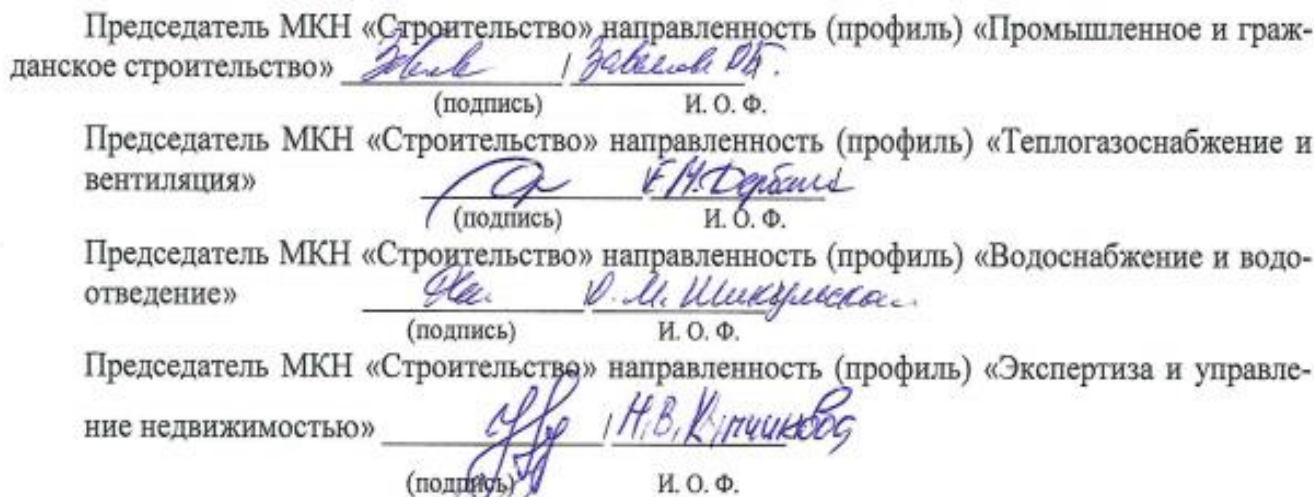 Председатель МКН «Строительство» направленность (профиль) «Промышленное и граж-
данское строительство» /
(подпись) И. О. Ф.
Председатель МКН «Строительство» направленность (профиль) «Теплогазоснабжение и
вентиляция» / Е.М. Дербасова
(подпись) И. О. Ф.
Председатель МКН «Строительство» направленность (профиль) «Водоснабжение и водо-
отведение» О. М. Шикульская
(подпись) И. О. Ф.
Председатель МКН «Строительство» направленность (профиль) «Экспертиза и управле-
ние недвижимостью» / Н.В. Купчикова
(подпись) И. О. Ф.